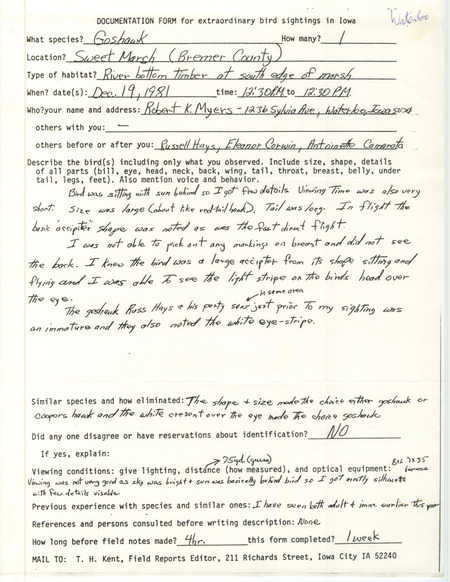 Waterloo
DOCUMENTATION FORM for extraordinary bird sightings in Iowa
What species? Goshawk How many? 1
Location? Sweet March (Bremer County)
Type of habitat? River bottom timber at south edge of marsh
When? date(s): Dec. 19, 1981 time: 12:30 P.M. to 12:30 P.M.
Who? your name and address: Robert K. Myers - 1236 Sylvia Ave, Waterloo, Iowa
others with you: —
others before or after you: Russell Hays, Eleanor Corwin, Antoinette Camarata
Describe the bird(s) including only what you observed. Include size, shape, details
of all parts (bill, eye, head, neck, back, wing, tail, throat, breast, belly, under
tail, legs, feet). Also mention voice and behavior.
Bird was sitting with sun behind so I got few details. Viewing time was also very
short. Size was large (about like redtail hawk), Tail was long. In flight the
basic "accipiter" shape was noted as was the fast direct flight.
I was not able to pick out any markings on breast and did not see
the back. I knew the bird was a large accipter from its shape sitting and
flying and I was able to see the light stripe on the birds head over
the eye.
in same area
The goshawk Russ Hays & his party saw just prior to my sighting was
an immature and they also noted the white eye-stripe.
Similar species and how eliminated: The shape + size made the choice either goshawk or
coopers hawk and the white cresent over the eye made the choice goshawk
Did any one disagree or have reservations about identification? NO
If yes, explain:
75yd. (guess)
Viewing conditions: give lighting, distance (how measured), and optical equipment: B+L 7X35
Viewing was not very good as sky was bright + sun was basically behind bird so I got mostly silhouette
with few details visable
Previous experience with species and similar ones: I have seen both adult + imm. earlier this year
References and persons consulted before writing description: None
How long before field notes made? 4hr. this form completed? 1 week
MAIL TO: T. H. Kent, Field Reports Editor, 211 Richards Street, Iowa City IA 52240